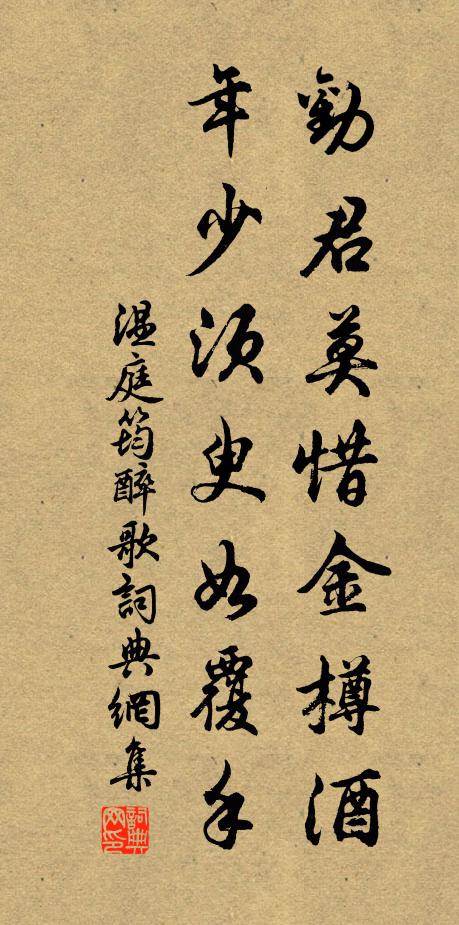 勸君莫惜金樽酒
年少須臾如覆手
溫庭筠醉歌詞典網集
詞典網印